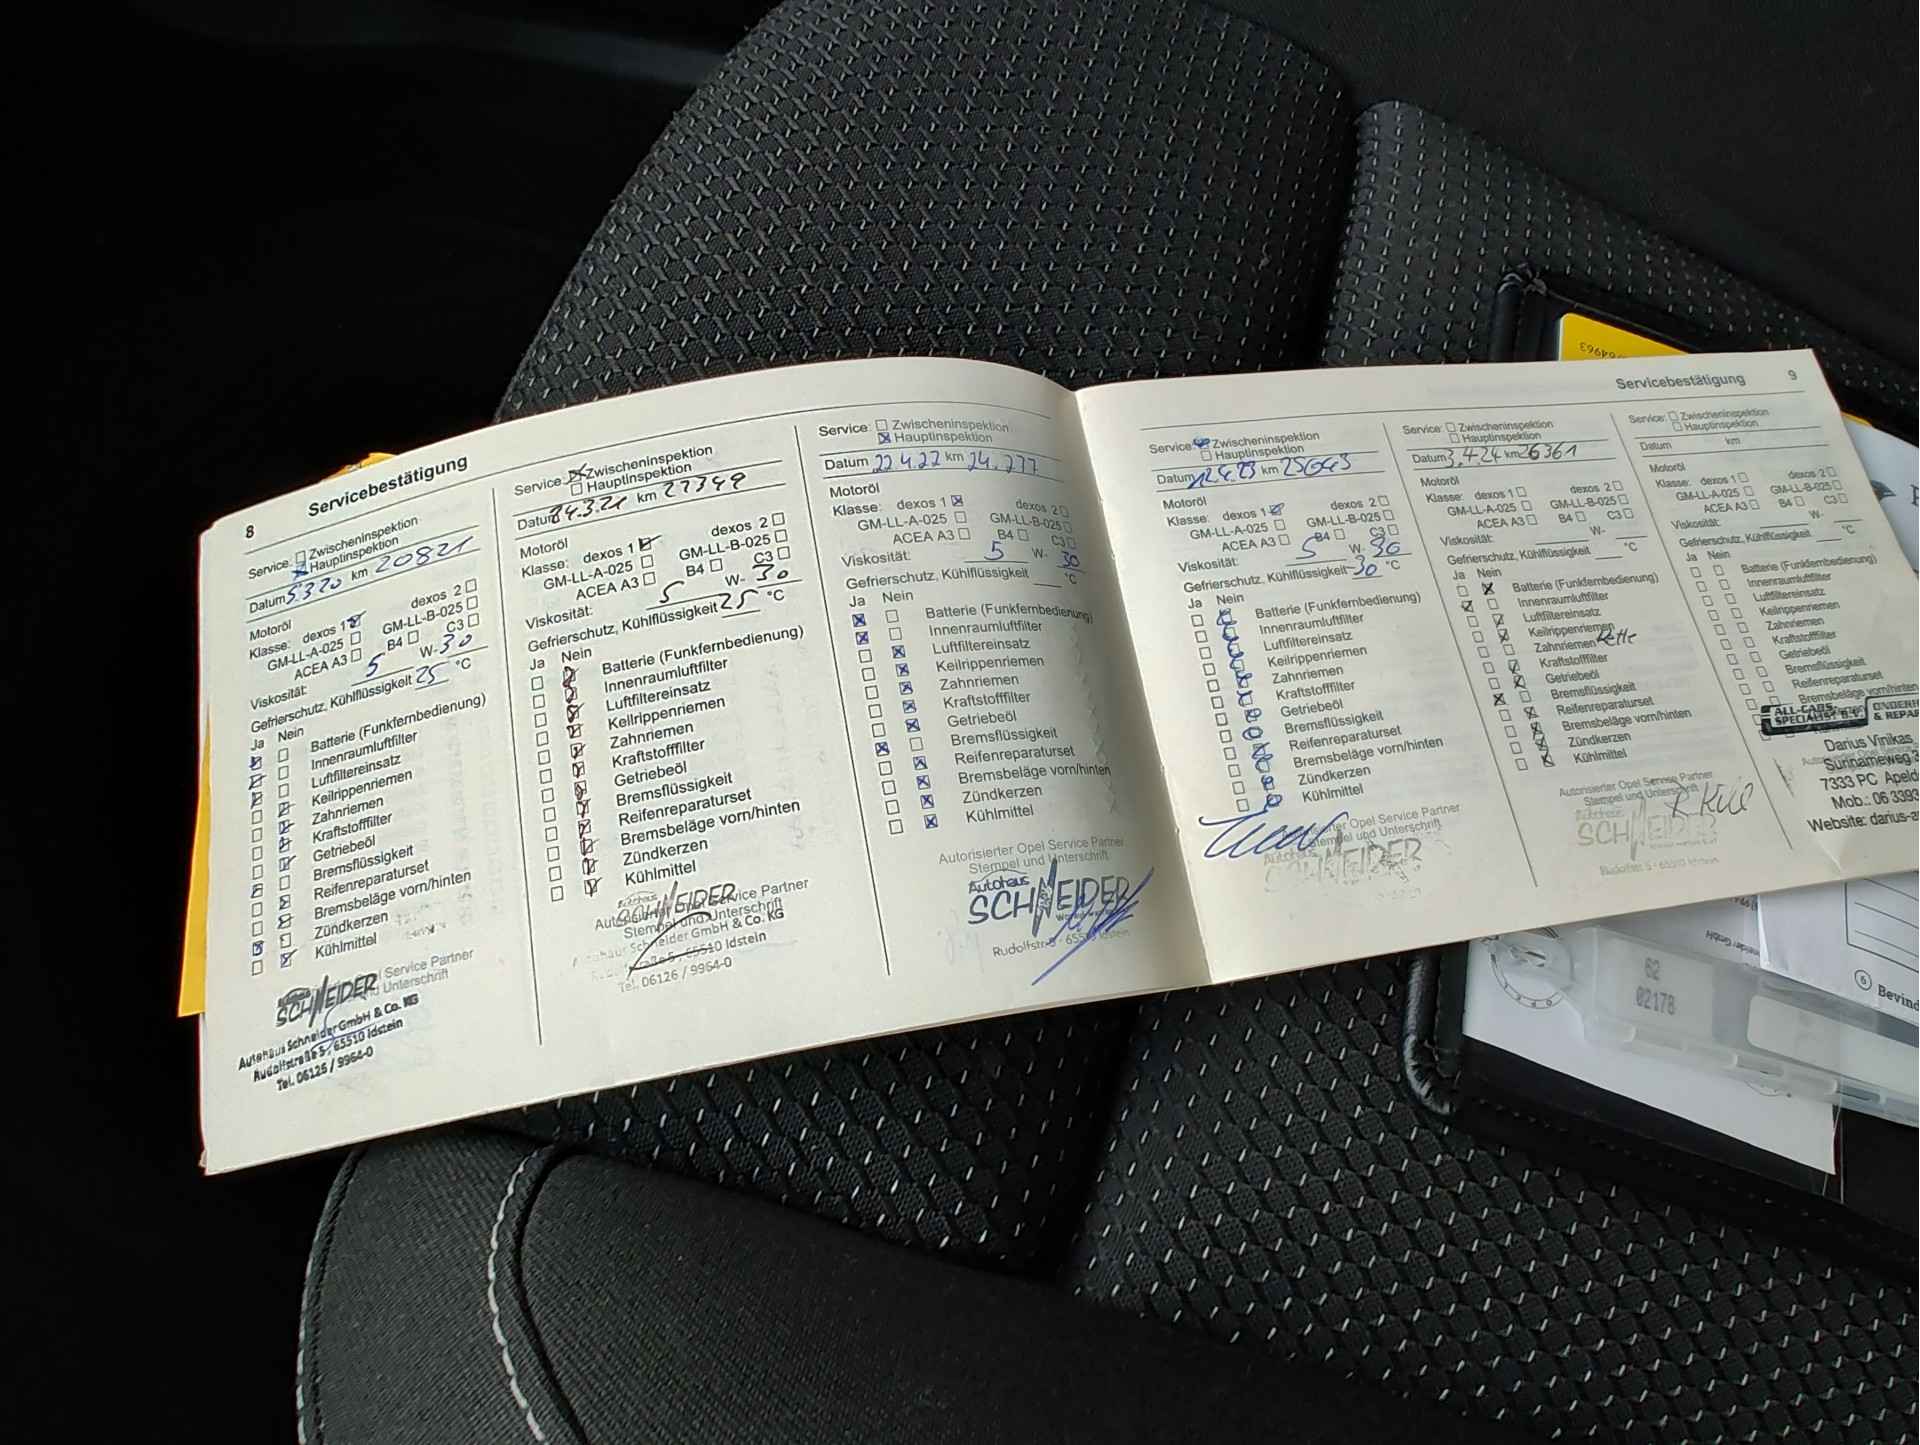 8
Servicebestätigung
Service: Zwischeninspektion
Hauptinspektion
Datum 5.3.20 km 20821
Motoröl
Klasse: dexos 1 dexos 2
GM-LL-A-025 GM-LL-B-025
ACEA A3 B4 C3
Viskosität: 5 W- 30
Gefrierschutz, Kühlflüssigkeit 25 °C
Ja Nein
Batterie (Funkfernbedienung)
Innenraumluftfilter
Luftfiltereinsatz
Keilrippenriemen
Zahnriemen
Kraftstofffilter
Getriebeöl
Bremsflüssigkeit
Reifenreparaturset
Bremsbeläge vorn/hinten
Zündkerzen
Kühlmittel
SCHNEIDER
Autohaus Schneider GmbH & Co. KG
Rudolfstraße 5, 65510 Idstein
Tel. 06126 / 9964-0
Service: Zwischeninspektion
Hauptinspektion
Datum 3.21 km
Motoröl
Klasse: dexos 1 dexos 2
GM-LL-A-025 GM-LL-B-025
ACEA A3 B4 C3
Viskosität: 5 W- 30
Gefrierschutz, Kühlflüssigkeit 25 °C
Ja Nein
Batterie (Funkfernbedienung)
Innenraumluftfilter
Luftfiltereinsatz
Keilrippenriemen
Zahnriemen
Kraftstofffilter
Getriebeöl
Bremsflüssigkeit
Reifenreparaturset
Bremsbeläge vorn/hinten
Zündkerzen
Kühlmittel
Autorisierter Opel Service Partner
Stempel und Unterschrift
SCHNEIDER
Schneider GmbH & Co. KG
65510 Idstein
Tel. 06126 / 9964-0
Service: Zwischeninspektion
Hauptinspektion
Datum 22.4.22 km 24.277
Motoröl
Klasse: dexos 1 dexos 2
GM-LL-A-025 GM-LL-B-025
ACEA A3 B4 C3
Viskosität: 5 W- 30
Gefrierschutz, Kühlflüssigkeit °C
Ja Nein
Batterie (Funkfernbedienung)
Innenraumluftfilter
Luftfiltereinsatz
Keilrippenriemen
Zahnriemen
Kraftstofffilter
Getriebeöl
Bremsflüssigkeit
Reifenreparaturset
Bremsbeläge vorn/hinten
Zündkerzen
Kühlmittel
Autorisierter Opel Service Partner
Stempel und Unterschrift
Autohaus
SCHNEIDER
Rudolfstr.5 - 65510 Idstein
Servicebestätigung
9
Service: Zwischeninspektion
Hauptinspektion
Datum 12.4.23 km 25643
Motoröl
Klasse: dexos 1 dexos 2
GM-LL-A-025 GM-LL-B-025
ACEA A3 B4 C3
Viskosität: 5 W- 30
Gefrierschutz, Kühlflüssigkeit -30 °C
Ja Nein
Batterie (Funkfernbedienung)
Innenraumluftfilter
Luftfiltereinsatz
Keilrippenriemen
Zahnriemen
Kraftstofffilter
Getriebeöl
Bremsflüssigkeit
Reifenreparaturset
Bremsbeläge vorn/hinten
Zündkerzen
Kühlmittel
Autorisierter Opel Service Partner
Stempel und Unterschrift
Autohaus
SCHNEIDER
Service: Zwischeninspektion
Hauptinspektion
Datum 3.4.24 km 26361
Motoröl
Klasse: dexos 1 dexos 2
GM-LL-A-025 GM-LL-B-025
ACEA A3 B4 C3
Viskosität: W-
Gefrierschutz, Kühlflüssigkeit °C
Ja Nein
Batterie (Funkfernbedienung)
Innenraumluftfilter
Luftfiltereinsatz
Keilrippenriemen
Zahnriemen Kette
Kraftstofffilter
Getriebeöl
Bremsflüssigkeit
Reifenreparaturset
Bremsbeläge vorn/hinten
Zündkerzen
Kühlmittel
Autorisierter Opel Service Partner
Stempel und Unterschrift
Autohaus
SCHNEIDER
Rudolfstr. 5 - 65510 Idstein
Service: Zwischeninspektion
Hauptinspektion
Datum km
Motoröl
Klasse: dexos 1 dexos 2
GM-LL-A-025 GM-LL-B-025
ACEA A3 B4 C3
Viskosität: W-
Gefrierschutz, Kühlflüssigkeit °C
Ja Nein
Batterie (Funkfernbedienung)
Innenraumluftfilter
Luftfiltereinsatz
Keilrippenriemen
Zahnriemen
Kraftstofffilter
Getriebeöl
Bremsflüssigkeit
Reifenreparaturset
Bremsbeläge vorn/hinten
ALL-CARS
SPECIALIST B.V.
ONDERH
& REPAR
Darius Vinikas
Surinameweg 3
7333 PC Apeld
Mob.: 06 3393
Website: darius-a
64963
62
02178
6 Bevind